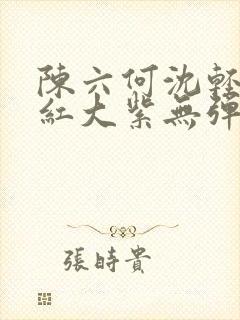 陳六何沈輕
紅大紫無彈
張時貴